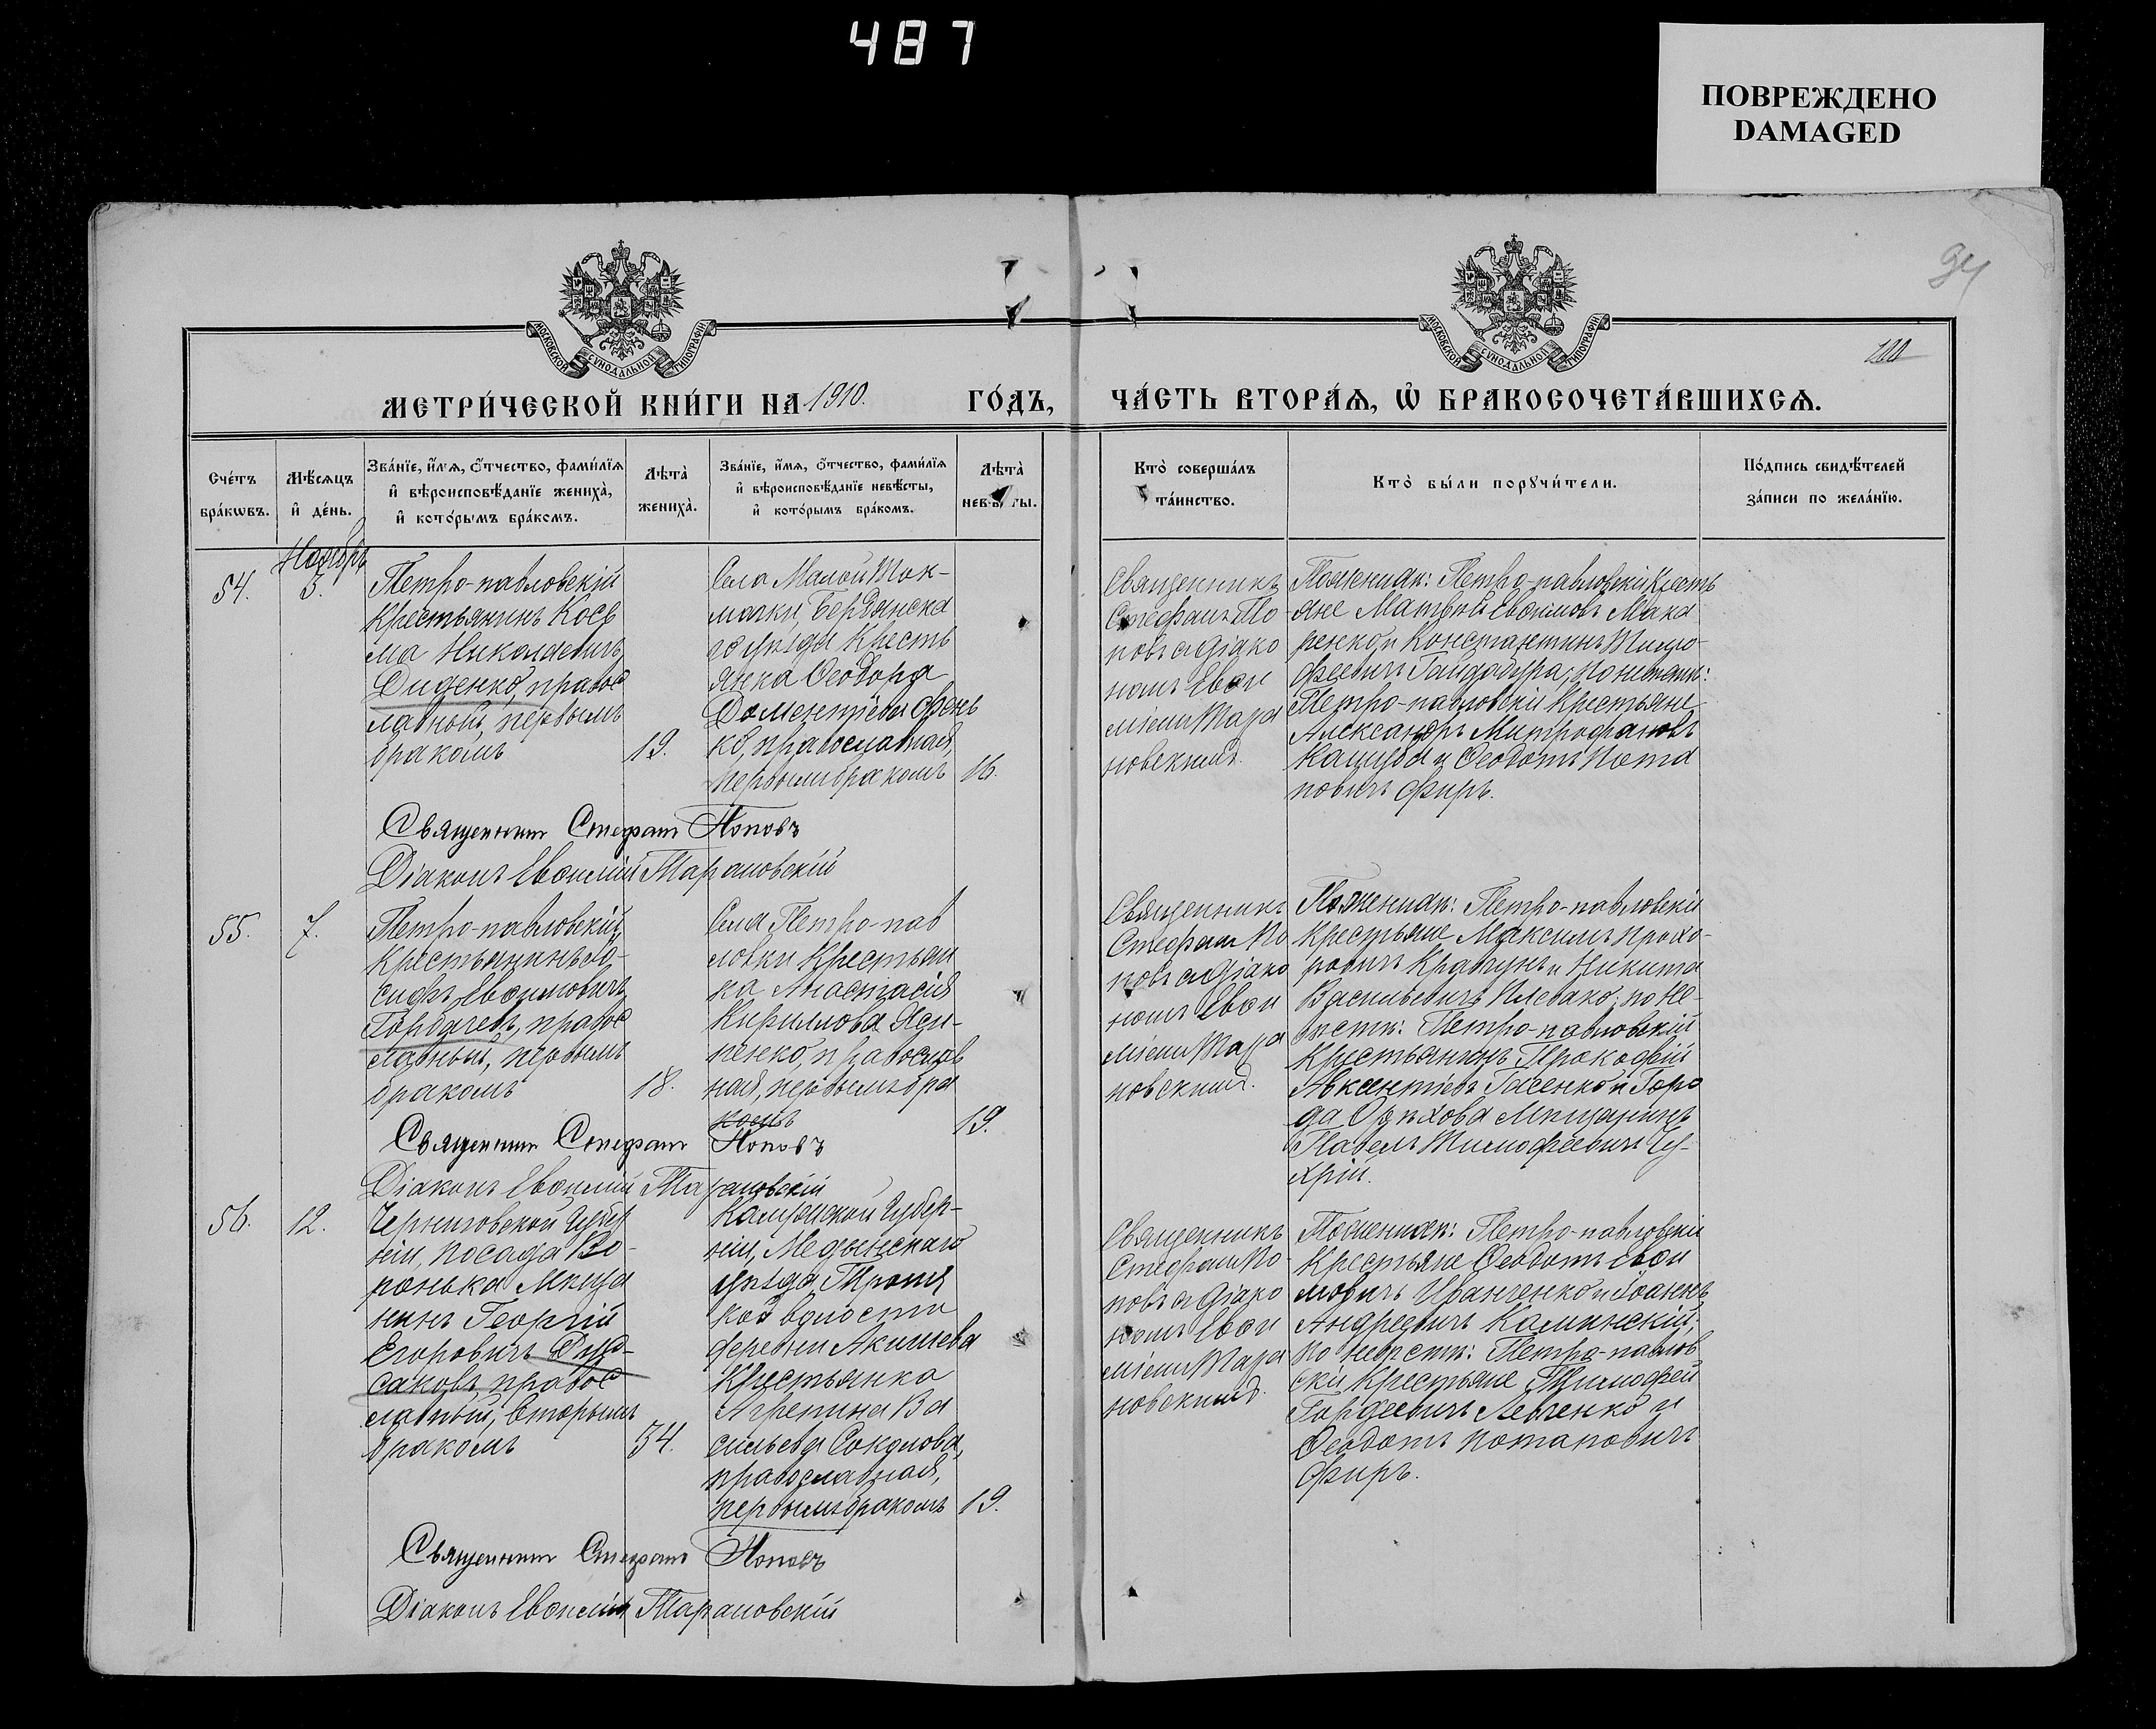 487
ПОВРЕЖДЕНО
DAMAGED
94
100
МОСКОВСКОЙ СѴНОДАЛЬНОЙ ТИПОГРАФІИ
МОСКОВСКОЙ СѴНОДАЛЬНОЙ ТИПОГРАФІИ
МЕТРИ́ЧЕСКОЙ КНИ́ГИ НА 1910. ГО́ДЪ,
ЧА́СТЬ ВТОРА́Ѧ, Ѽ БРАКОСОЧЕТА́ВШИХСѦ.
Сче́тъ
бра́кѡвъ.
Мѣ́сѧцъ
и҆ де́нь.
Зва́нїе, и҆́мѧ, ѻ҆́тчество, фами́лїѧ
и҆ вѣроисповѣ́данїе жениха̀,
и҆ кото́рымъ бра́комъ.
Лѣта̀
жениха̀.
Зва́нїе, и҆́мѧ, ѻ҆́тчество, фами́лїѧ
и҆ вѣроисповѣ́данїе невѣ́сты,
и҆ кото́рымъ бра́комъ.
Лѣта̀
нев ты.
Кто̀ соверша́лъ
та́инство.
Кто̀ бы́ли порꙋчи́тели.
По́дпись свидѣ́телей
за́писи по жела́нїю.
Ноябрь
54.
3.
Петро-павловскій
Крестьянинъ Кось
ма Николаевичъ
Диденко, правос
лавный, первымъ
бракомъ
19.
Села Малой Ток-
мачки, Бердянска
го уѣзда Кресть
янка Ѳеодора
Доментіева Фень
ко, православная,
первымъ бракомъ
16.
Священникъ
Стефанъ По
повъ съ діако
номъ Евѳи
міемъ Тара
новскимъ.
По женихѣ: Петро-павловскіе Кресть
яне Матвѣй Евѳимовъ Мака
ренко и Константинъ Тимо-
феевичъ Гайдабура; по невѣстѣ:
Петро-павловскіе Крестьяне
Александръ Митрофановъ
Кацуба и Ѳеодотъ Пота
повичъ Фиръ.
Священникъ Стефанъ Поповъ
Діаконъ Евѳимій Тарановскій
55.
7.
Петро-павловскій
Крестьянинъ Іо-
сифъ Евѳимовичъ
Горбачевъ, правос
лавный, первымъ
бракомъ
18.
Села Петро-пав
ловки Крестьян
ка Анастасія
Кириллова Яси-
ненко, православ
ная, первымъ бра
комъ
19.
Священникъ
Стефанъ По
повъ съ діако
номъ Евѳи
міемъ Тара
новскимъ.
По женихѣ: Петро-павловскіе
Крестьяне Максимъ Прохо-
ровичъ Крапунъ и Никита
Васильевичъ Плевако; по не-
вѣстѣ: Петро-павловскій
Крестьянинъ Прокофій
Авксентіевъ Гасенко и Горо
да Орѣхова Мѣщанинъ
Павелъ Тимофеевичъ Чу-
хрій.
Священникъ Стефанъ Поповъ
Діаконъ Евѳимій Тарановскій
56.
12.
Черниговской Губер
ніи, посада Во-
ронька Мѣща
нинъ Георгій
Егоровичъ Дур-
саковъ, правос
лавный, вторымъ
бракомъ
34.
Калужской Губер-
ніи, Медынскаго
уѣзда Троиц
кой волости
деревни Акишева
Крестьянка
Агрепина Ва
сильева Соколова,
православная,
первымъ бракомъ
19.
Священникъ
Стефанъ По
повъ съ діако
номъ Евѳи
міемъ Тара
новскимъ.
По женихѣ: Петро-павловскіе
Крестьяне Ѳеодотъ Евѳи
мовичъ Иванченко и Іоаннъ
Андреевичъ Калинскій;
по невѣстѣ: Петро-павлов
скіе Крестьяне Тимофей
Гордеевичъ Левченко и
Ѳеодотъ Потаповичъ
Фиръ.
Священникъ Стефанъ Поповъ
Діаконъ Евѳимій Тарановскій